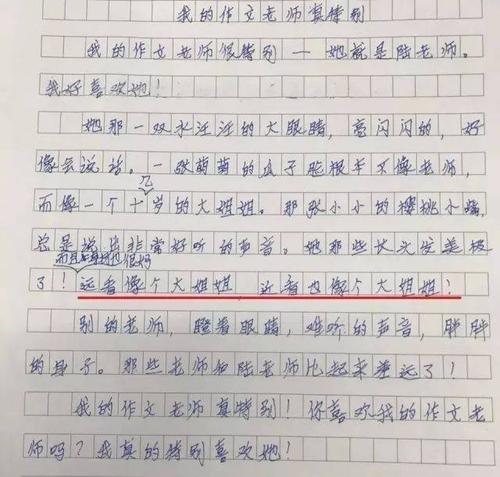 我的作文老师真特别
我的作文老师很特别——她就是陆老师。
我好喜欢她!
她那一双水汪汪的大眼睛,亮闪闪的,好
像会说话。一张萌萌的瓜子脸根本不像老师,
而像一个十几岁的大姐姐。那张小小的樱桃小嘴,
总是说出非常好听的声音。她那些长头发美极
了!而且身材也很好
远看像个大姐姐,近看也像个大姐姐!
别的老师,瞪着眼睛,难听的声音,胖胖
的身子。那些老师和陆老师比起来差远了!
我的作文老师真特别!你喜欢我的作文老
师吗?我真的特别喜欢她!